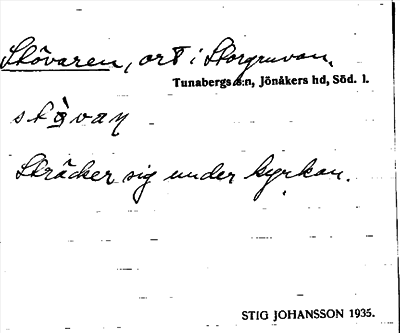 Stövaren, ort i Storgruvan.
Tunabergs s:n, Jönåkers hd, Söd. l.
Sträcker sig under kyrkan.
STIG JOHANSSON 1935.